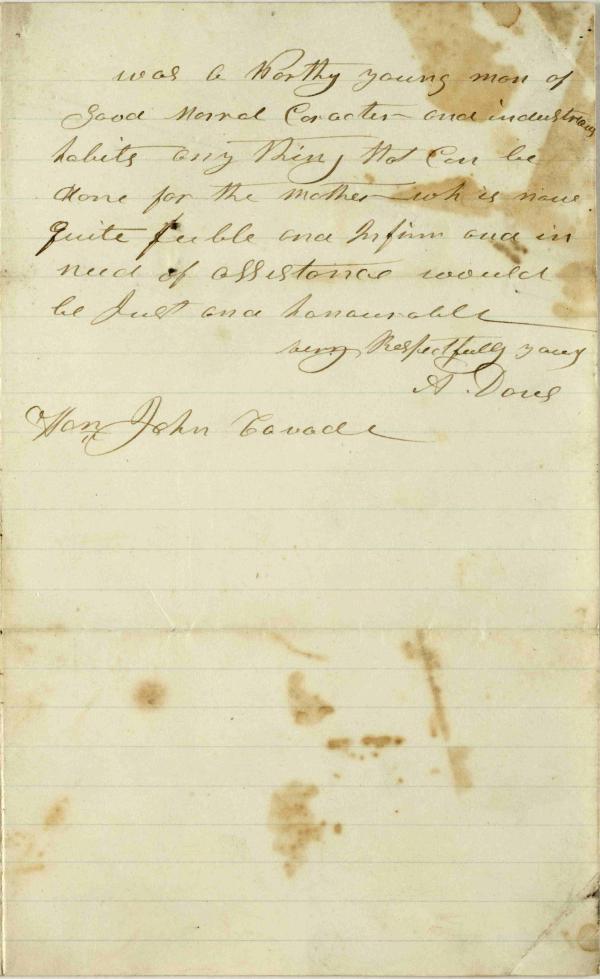 was a Worthy young man of
Good Morral Caracter and industrious
habits any thing that Can be
done for the mother who is now
quite feeble and Infirm and in
need of assistance would
be Just and honourable
very Respectfully yours
A.
Hon John Covode